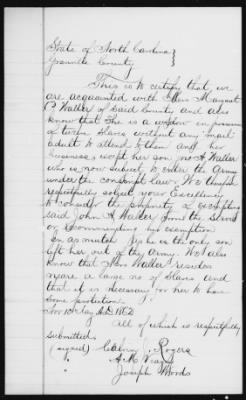 State of North Carolina }
Granville County }
This is to certify that we
are acquainted with Mrs Margaret
P Waller of said County and also
know that she is a widow in possession
of twelve slaves without any male
adult to attend to them and her
business except her son Jno A Waller
who is now subject to enter the Army
under the conscript law. We therefore
respectfully solicit your Excellency
to consider the propriety of exempting
said John A Waller from the service
or recommending his exemption
In as mutch as he is the only son
left her out of the Army. We also
know that Mrs Waller resides
neare a large no of slaves and
that it is necessary for her to have
some protection.
Nov 10th day A.D. 1862
All of which is respectfully
submitted
(signed) Calvin J. Rogers
" A. M.
" Joseph Woods